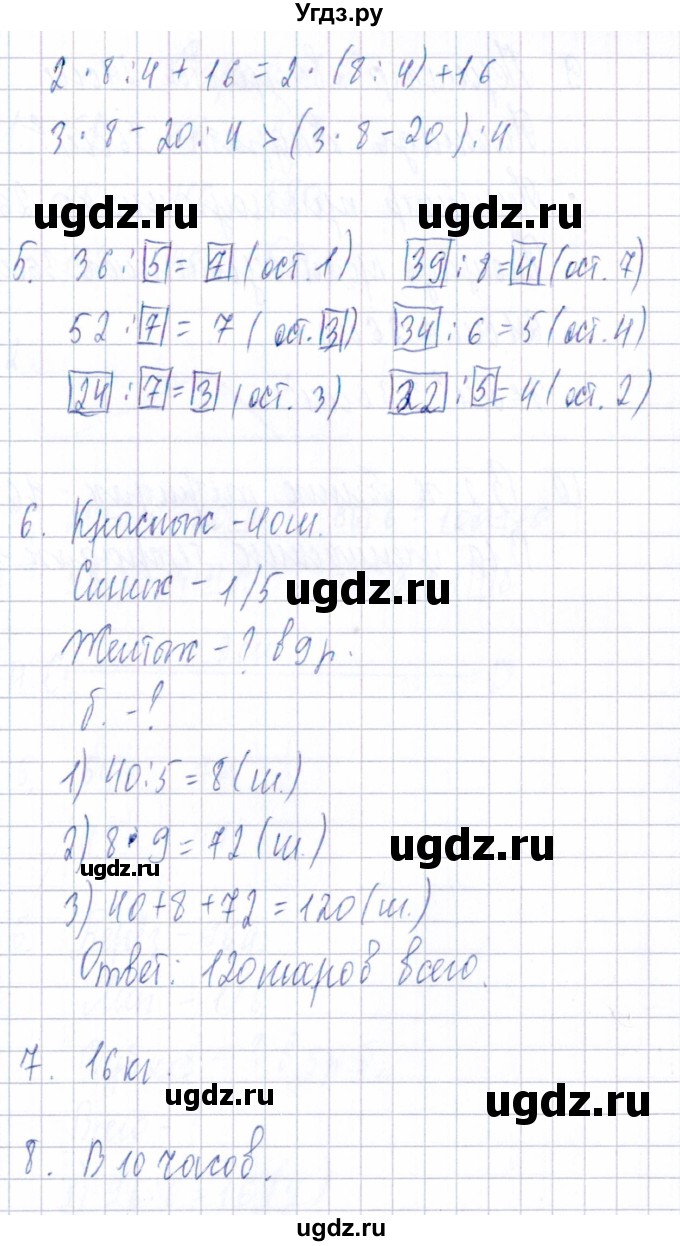 Угдз.ру
2 · 8 : 4 + 16 = 2 · (8 : 4) + 16
3 · 8 - 20 : 4 > (3 · 8 - 20) : 4
ugdz.ru ugdz.ru
5. 36 : 5 = 7 (ост. 1) 39 : 8 = 4 (ост. 7)
52 : 7 = 7 (ост. 3) 34 : 6 = 5 (ост. 4)
24 : 7 = 3 (ост. 3) 22 : 5 = 4 (ост. 2)
6. Красных - 40 ш.
Синих - 1/5 ugdz.ru
Желтых - ? в 9 р.
б. - ?
1) 40 : 5 = 8 (ш.)
2) 8 · 9 = 72 (ш.) ugdz.ru
ugdz.ru
3) 40 + 8 + 72 = 120 (ш.)
Ответ: 120 шаров всего.
7. 16 кг.
ugdz.ru ugdz.ru
8. В 10 часов.
ugdz.ru